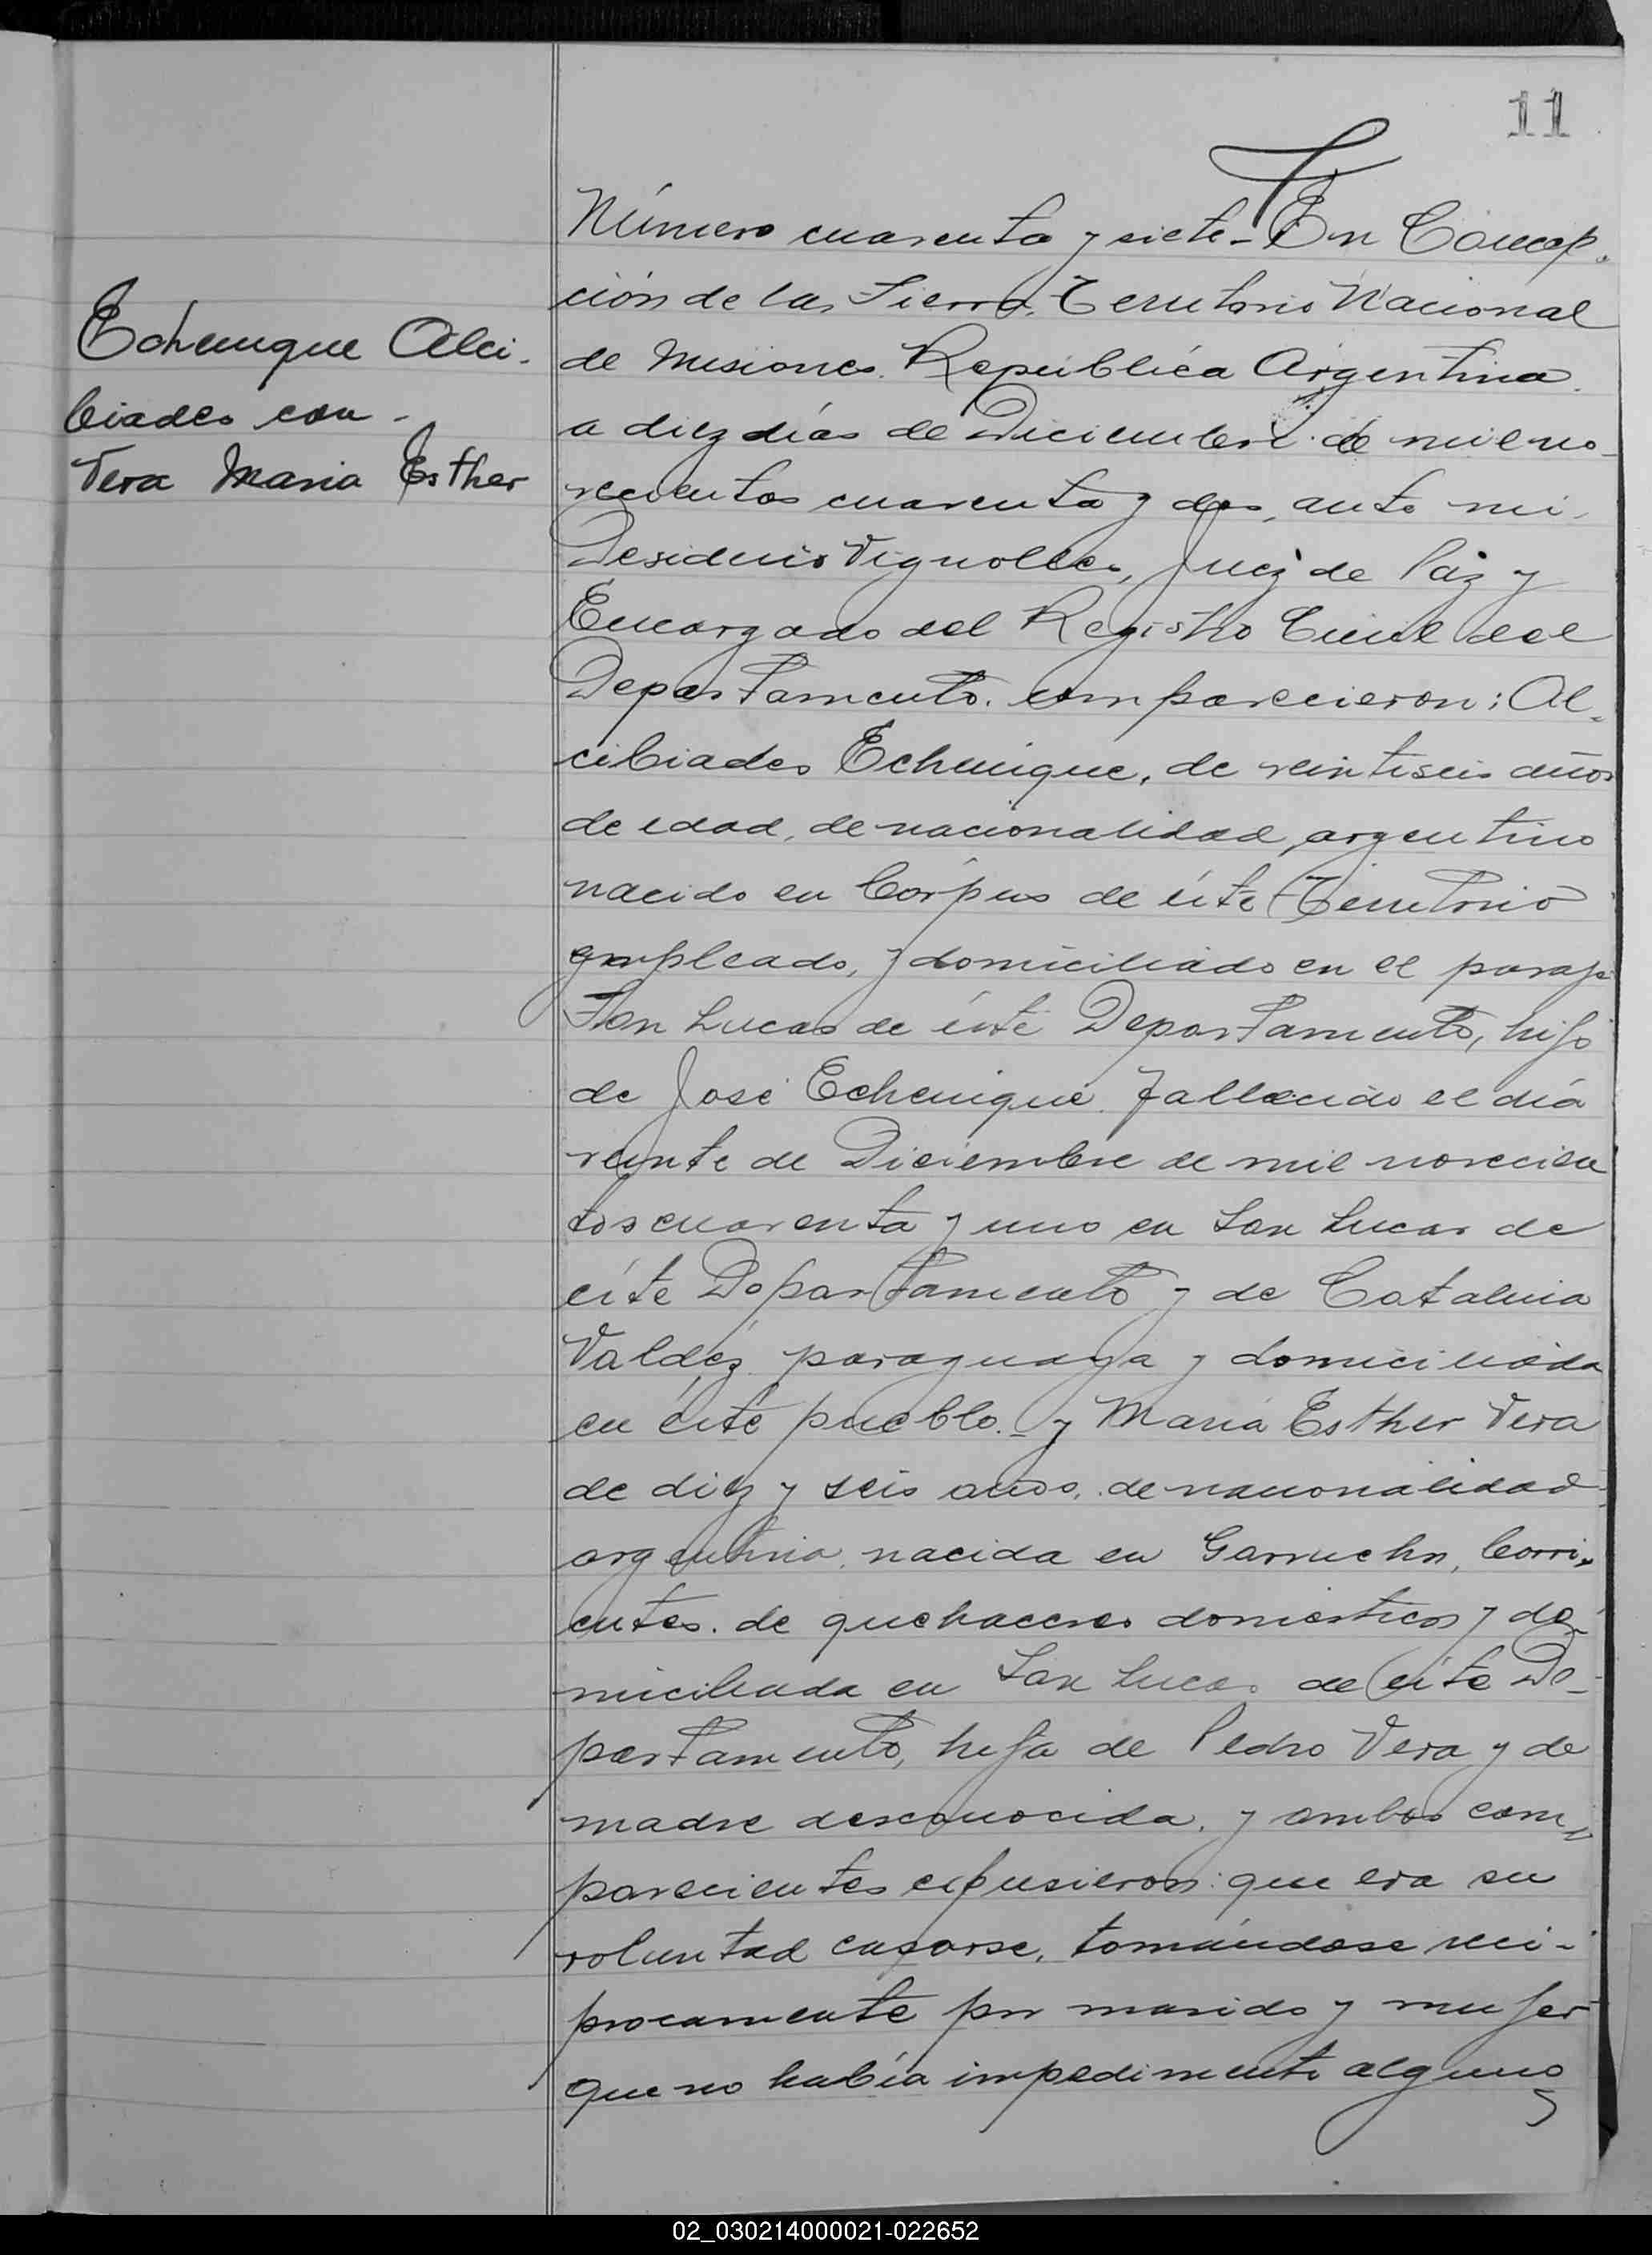 11
Número cuarenta y siete - En Concep-
ción de la Sierra, Territorio Nacional
Echenique Alci-
de Misiones. República Argentina.
biades con -
a diez días de Diciembre de mil no-
Vera Maria Esther
vecientos cuarenta y dos, ante mi,
Desiderio Vignolles, Juez de Paz y
Encargado del Registro Civil del
Departamento. comparecieron: Al-
cibiades Echenique, de veintiseis años
de edad, de nacionalidad argentino
nacido en Córpus de éste Territorio
empleado, y domiciliado en el paraje
San Lucas de éste Departamento, hijo
de José Echenique fallecido el día
veinte de Diciembre de mil novecien
tos cuarenta y uno en San Lucas de
éste Departamento y de Catalina
Valdéz paraguaya y domiciliada
en éste pueblo. - y María Esther Vera
de diez y seis años, de nacionalidad
argentina, nacida en Garruchos, Corri-
entes. de quehaceres domésticos y do-
miciliada en San Lucas de éste De-
partamento, hija de Pedro Vera y de
madre desconocida. y ambos com-
parecientes expusieron: que era su
voluntad casarse, tomándose reci-
procamente por marido y mujer
que no había impedimento alguno
02_030214000021-022652